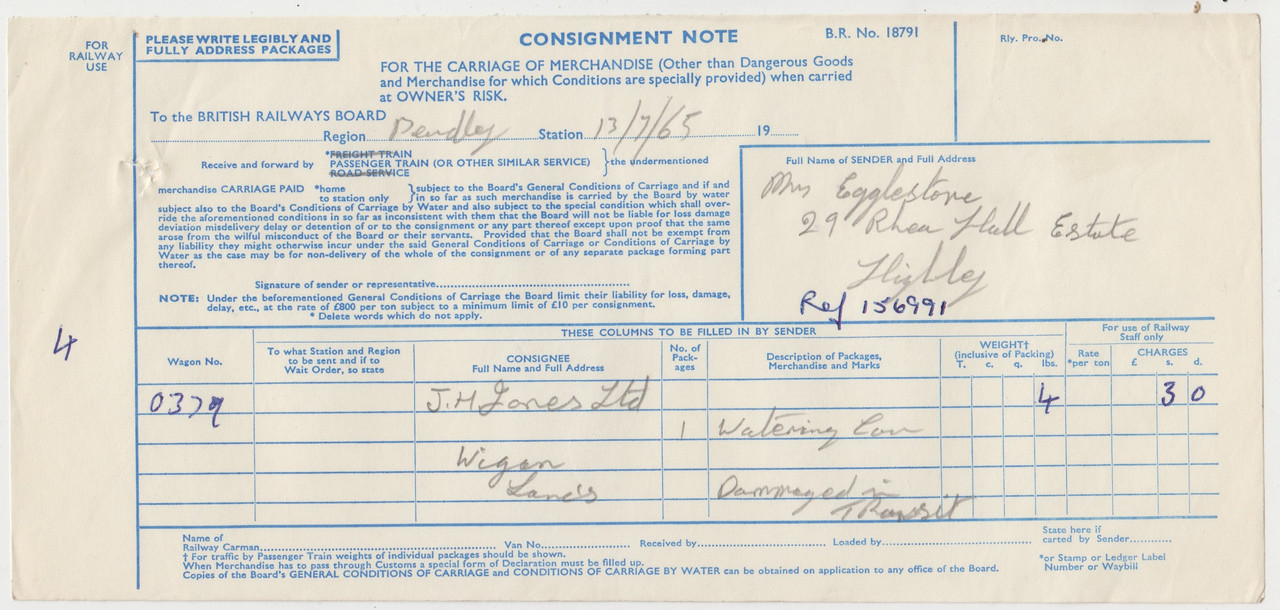 FOR
RAILWAY
USE
PLEASE WRITE LEGIBLY AND
FULLY ADDRESS PACKAGES
CONSIGNMENT NOTE
B.R. No. 18791
Rly. Pro. No.
FOR THE CARRIAGE OF MERCHANDISE (Other than Dangerous Goods
and Merchandise for which Conditions are specially provided) when carried
at OWNER'S RISK.
To the BRITISH RAILWAYS BOARD
Region Station 13/7/65 19
Receive and forward by
*FREIGHT TRAIN
PASSENGER TRAIN (OR OTHER SIMILAR SERVICE)
ROAD SERVICE
the undermentioned
merchandise CARRIAGE PAID *home
to station only
subject to the Board's General Conditions of Carriage and if and
in so far as such merchandise is carried by the Board by water
subject also to the Board's Conditions of Carriage by Water and also subject to the special condition which shall over-
ride the aforementioned conditions in so far as inconsistent with them that the Board will not be liable for loss damage
deviation misdelivery delay or detention of or to the consignment or any part thereof except upon proof that the same
arose from the wilful misconduct of the Board or their servants. Provided that the Board shall not be exempt from
any liability they might otherwise incur under the said General Conditions of Carriage or Conditions of Carriage by
Water as the case may be for non-delivery of the whole of the consignment or of any separate package forming part
thereof.
Signature of sender or representative
NOTE: Under the beforementioned General Conditions of Carriage the Board limit their liability for loss, damage,
delay, etc., at the rate of £800 per ton subject to a minimum limit of £10 per consignment.
* Delete words which do not apply.
Full Name of SENDER and Full Address
Mrs Egglestone
29 Rhea Hall Estate
Highley
Ref 156991
4
THESE COLUMNS TO BE FILLED IN BY SENDER
For use of Railway
Staff only
Wagon No.
To what Station and Region
to be sent and if to
Wait Order, so state
CONSIGNEE
Full Name and Full Address
No. of
Pack-
ages
Description of Packages,
Merchandise and Marks
WEIGHT†
(inclusive of Packing)
T. c. q. lbs.
Rate
*per ton
CHARGES
£ s. d.
0379 J.H Jones Ltd 4 3 0
1 Watering Can
Wigan
Lancs Dammaged in
TRansit
Name of
Railway Carman Van No. Received by Loaded by
State here if
carted by Sender
† For traffic by Passenger Train weights of individual packages should be shown.
When Merchandise has to pass through Customs a special form of Declaration must be filled up.
Copies of the Board's GENERAL CONDITIONS OF CARRIAGE and CONDITIONS OF CARRIAGE BY WATER can be obtained on application to any office of the Board.
*or Stamp or Ledger Label
Number or Waybill